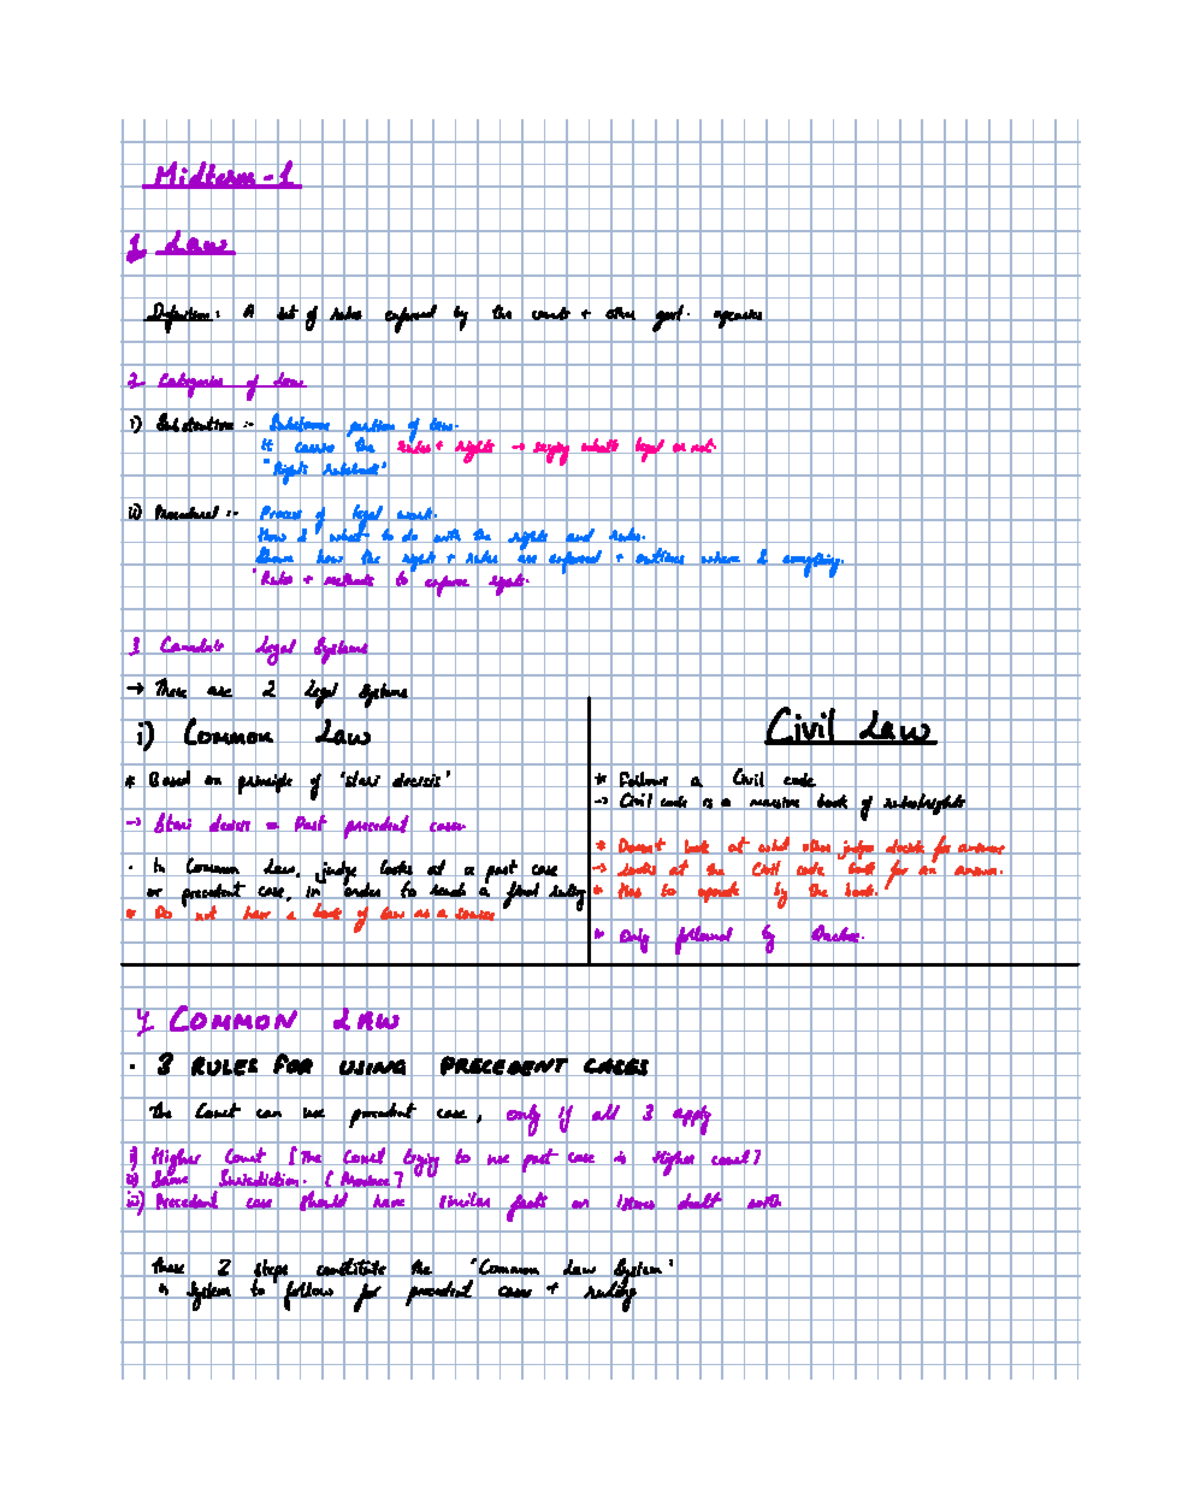 Midterm - 1
1 Law
Definition: A set of rules enforced by the courts + other govt. agencies
2 Categories of Law
i) Substantive :- Substance portion of law.
It carries the rules + rights → saying what's legal or not.
"Rights Rulebook"
ii) Procedural :- Process of legal work.
How & what to do with the rights and rules.
Shows how the right + rules are enforced + outlines where & everything.
"Rules + methods to enforce rights.
3 Canada's Legal Systems
→ There are 2 Legal Systems
i) Common Law
* Based on principle of 'stari decisis'
→ Stari decisis = Past precedent cases
· In Common Law, judge looks at a past case
or precedent case, in order to reach a final ruling
* Do not have a book of law as a source
Civil Law
* Follows a Civil code
→ Civil code is a massive book of rules+rights
* Doesn't look at what other judges decide for answer
→ Looks at the Civil code book for an answer.
* Has to operate by the book.
* Only followed by Quebec.
4 COMMON LAW
· 3 RULES FOR USING PRECEDENT CASES
The Court can use precedent case, only if all 3 apply
i) Higher Court [The Court trying to use past case is Higher court?]
ii) Same Jurisdiction. [Province?]
iii) Precedent case should have similar facts or issues dealt with
These 2 steps constitute the 'Common Law System'
System to follow for precedent cases + ruling